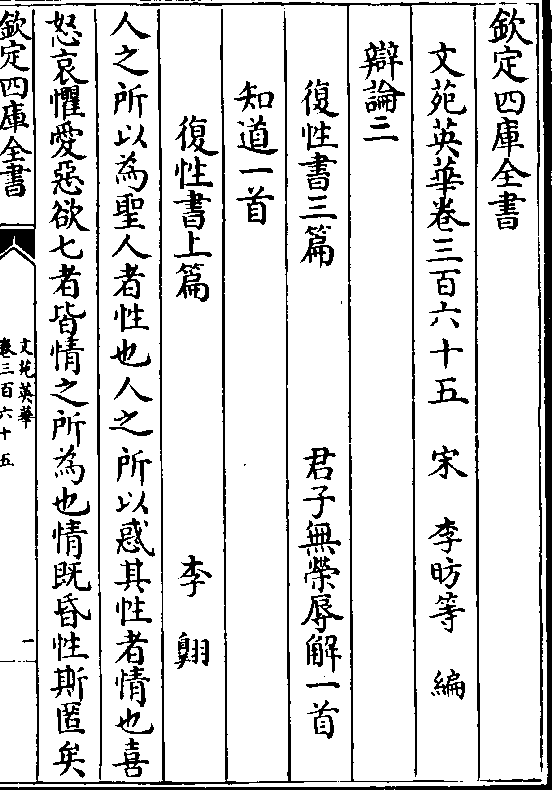 欽定四庫全書
文苑英華卷三百六十五 宋 李昉等 編
辯論三
復性書三篇 君子無榮辱解一首
知道一首
復性書上篇 李翺
人之所以為聖人者性也人之所以惑其性者情也喜
怒哀懼愛惡欲七者皆情之所為也情既昏性斯匿矣
欽定四庫全書
文苑英華
卷三百六十五
一